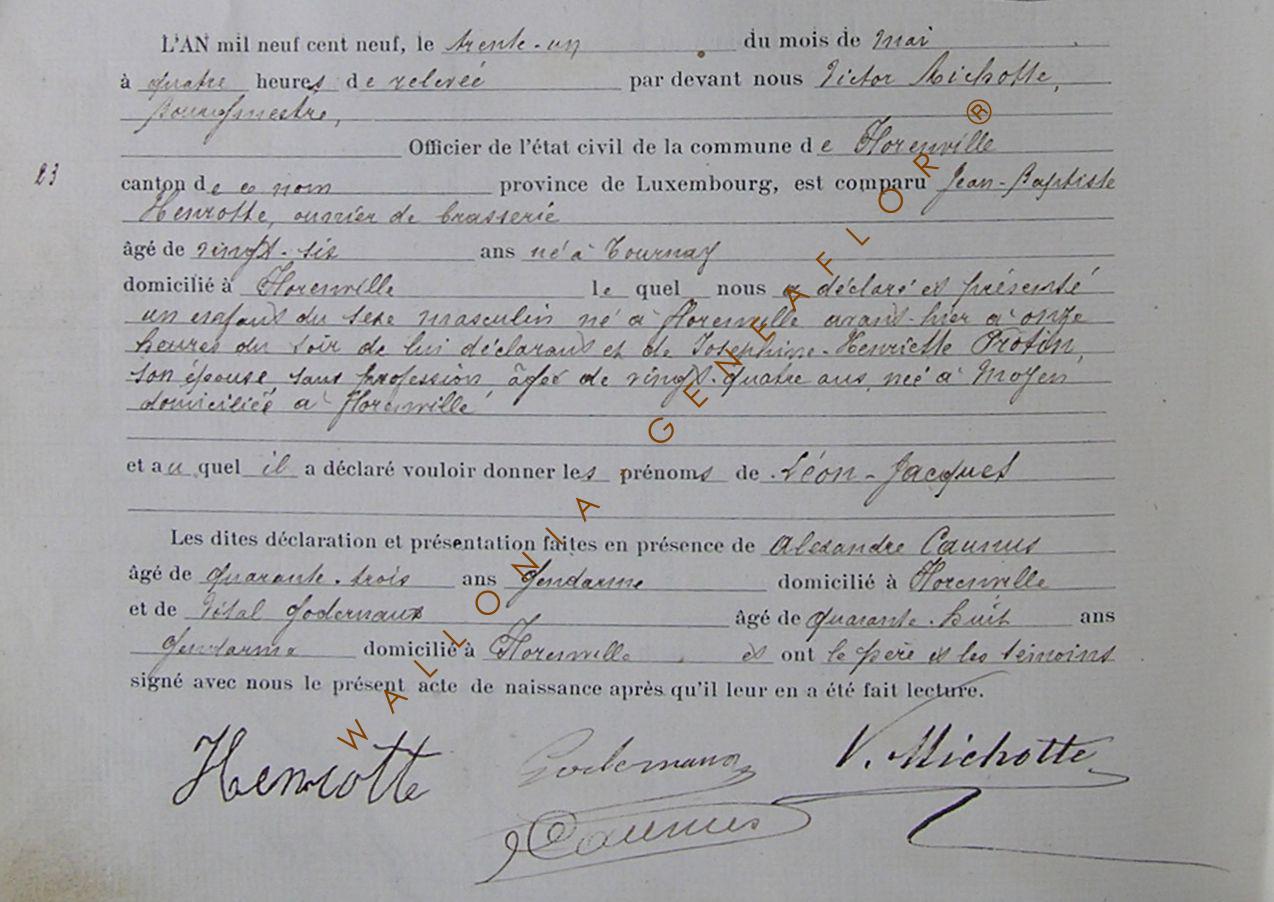 L'AN mil neuf cent neuf, le trente-un du mois de mai
à quatre heures de relevée par devant nous Victor Michotte,
Bourgmestre,
Officier de l'état civil de la commune de Florenville
23
canton de ce nom province de Luxembourg, est comparu Jean-Baptiste
Henrotte, ouvrier de brasserie
âgé de vingt-six ans né à Tournay
domicilié à Florenville le quel nous a déclaré et présenté
un enfant du sexe masculin né à Florenville avant-hier à onze
heures du soir de lui déclarant et de Josephine-Henriette Protin,
son épouse, sans profession, âgée de vingt-quatre ans, née à Moyen
domiciliée à Florenville
et au quel il a déclaré vouloir donner les prénoms de Léon-Jacques
Les dites déclaration et présentation faites en présence de Alexandre Caunus
âgé de quarante-trois ans Gendarme domicilié à Florenville
et de Vital Godernaux âgé de quarante-huit ans
Gendarme domicilié à Florenville et ont le père et les témoins
signé avec nous le présent acte de naissance après qu'il leur en a été fait lecture.
Henrotte Godernaux V. Michotte
Caunus
WALLONIA GENEAFLOR ®